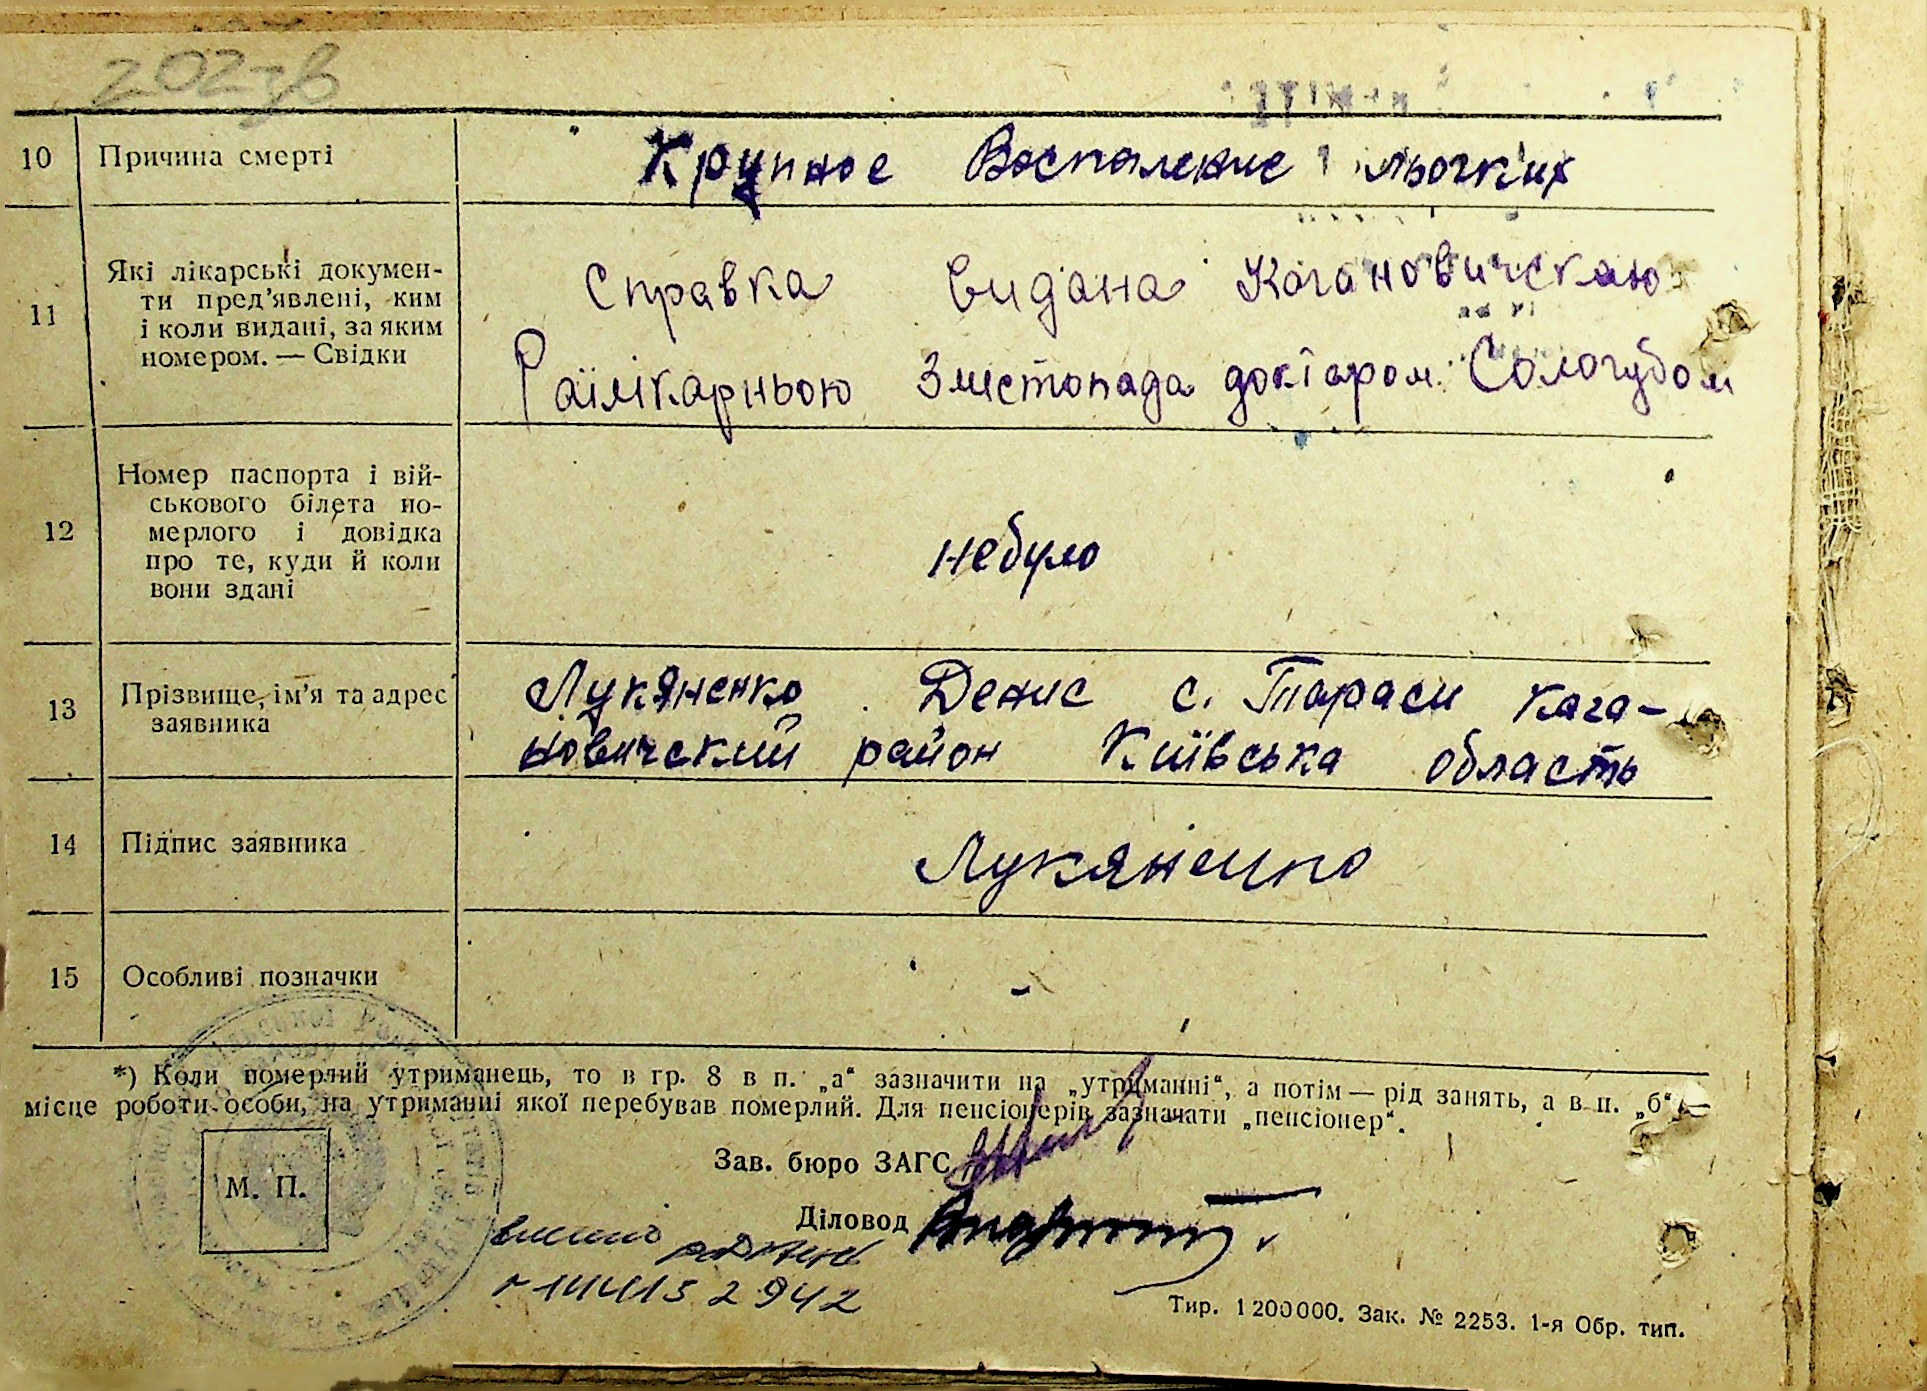 202зв
10 Причина смерті Крупное Воспаление льогких
11 Які лікарські докумен-
ти пред'явлені, ким
і коли видані, за яким
номером. — Свідки
Справка видана Кагановическаю
Райлікарньою 3 листопада доктаром Сологубом
12 Номер паспорта і вій-
ськового білета по-
мерлого і довідка
про те, куди й коли
вони здані
небуло
13 Прізвище, ім'я та адрес
заявника
Лукяненко Денис с. Тараси Кага-
новичский район Київська область
14 Підпис заявника Лукяненко
15 Особливі позначки -
*) Коли померлий утриманець, то в гр. 8 в п. „а“ зазначити на „утриманні“, а потім — рід занять, а в п. „б“ —
місце роботи особи, на утриманні якої перебував померлий. Для пенсіонерів зазначати „пенсіонер“.
Зав. бюро ЗАГС
М. П.
Діловод
2942
Тир. 1200000. Зак. № 2253. 1-я Обр. тип.